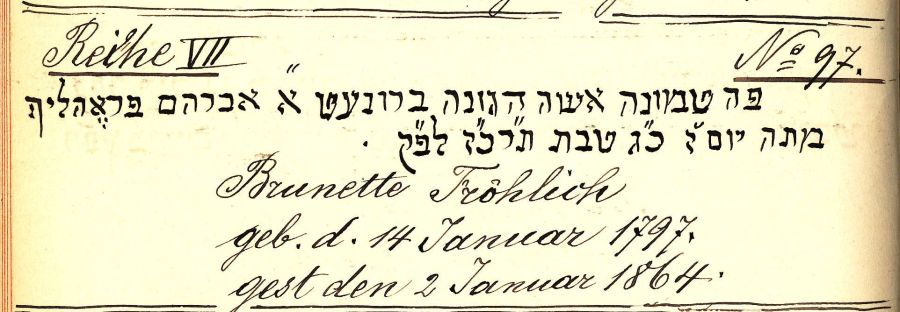 Reihe VII No 97.
פה טמונה אשה הגונה ברונעט א״ אברהם פראהליך
מתה יום ז׳ כ״ג טבת תרכ״ז לפ״ק .
Brunette Fröhlich
geb. d. 14 Januar 1797.
gest den 2 Januar 1864.